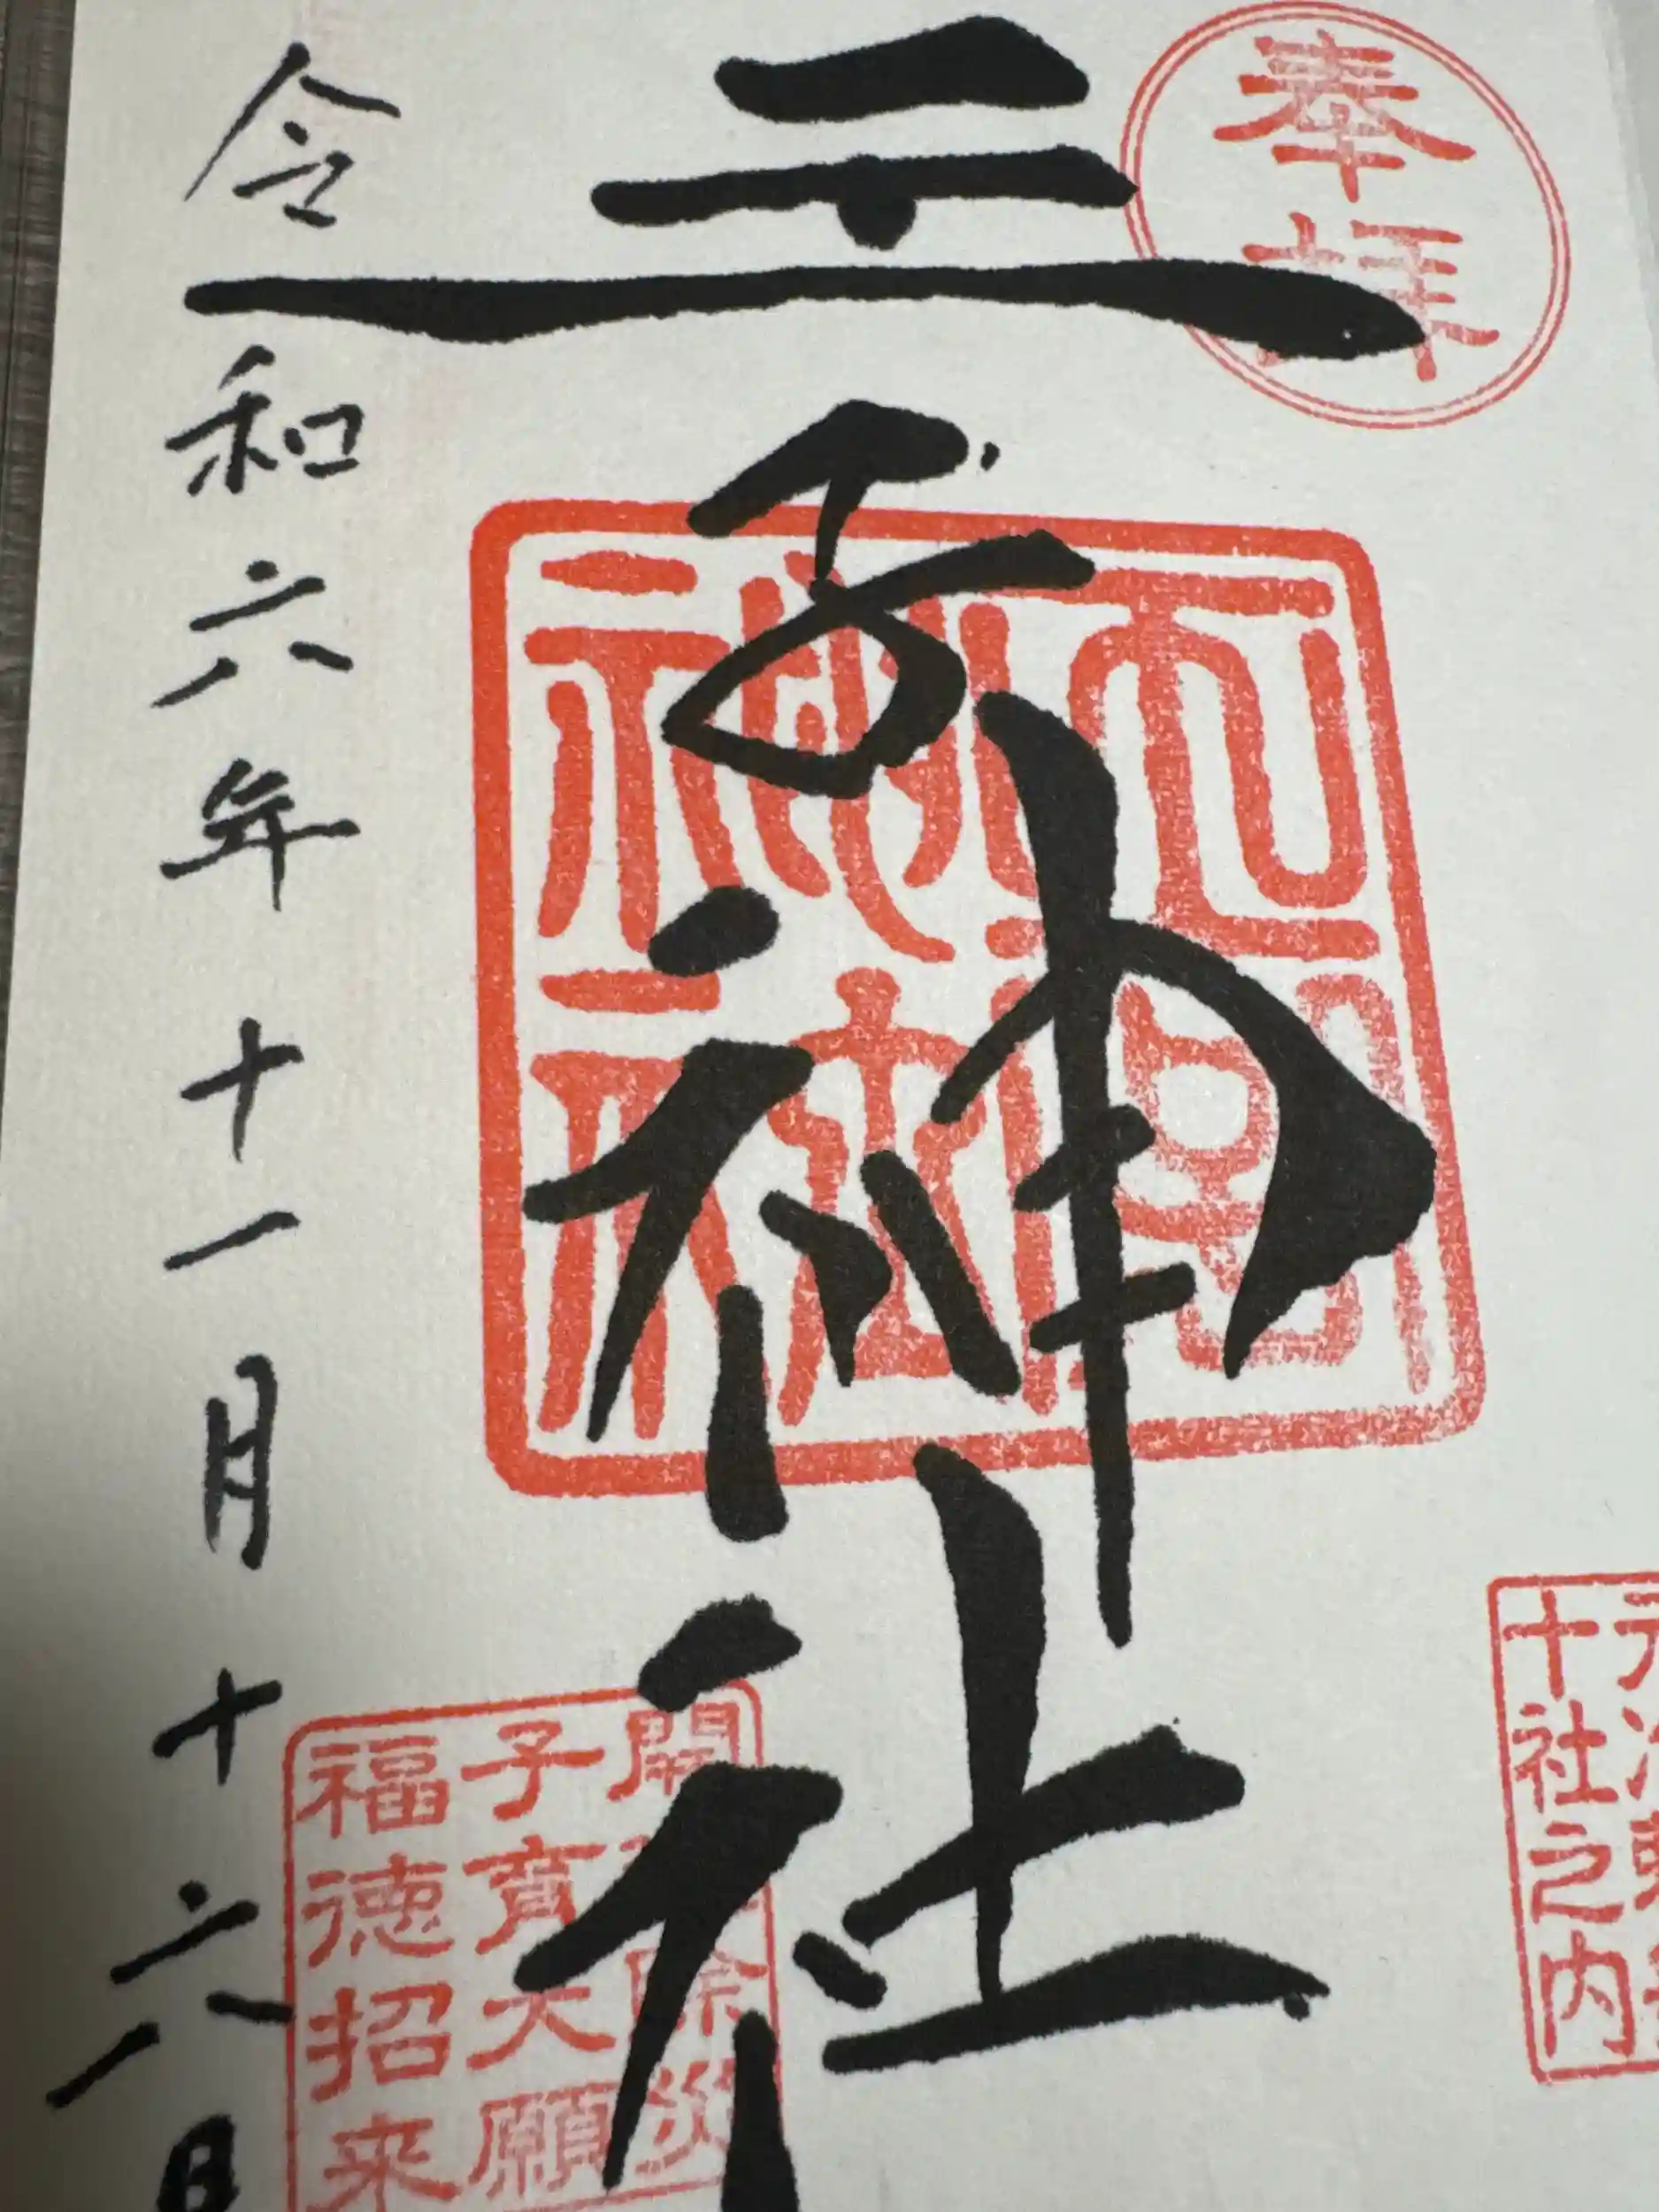 奉拝
十社之内
王子神社
神社
開 除災
子育大願
福徳招来
令和六年十一月十六日